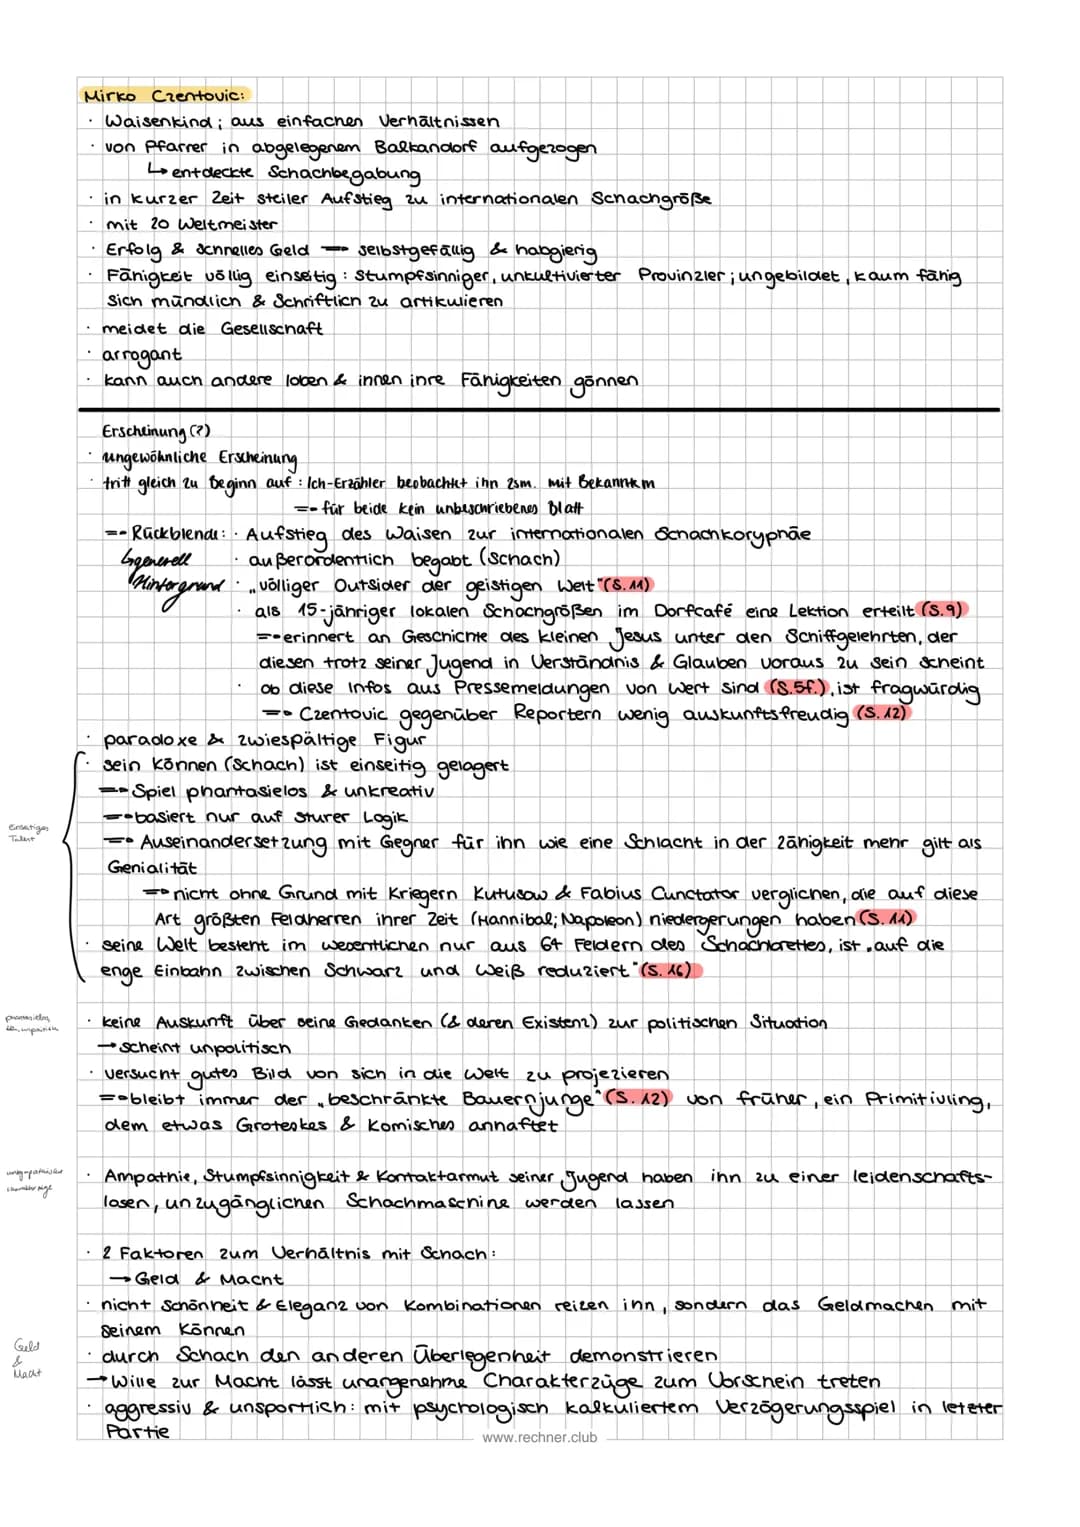 Mirko Czentovic:
· Waisenkind; aus einfachen Verhältnissen
· von Pfarrer in abgelegenem Balkandorf aufgezogen
↳ entdeckte Schachbegabung
· in kurzer Zeit steiler Aufstieg zu internationalen Schachgröße
· mit 20 Weltmeister
· Erfolg & schnelles Geld => selbstgefällig & habgierig
· Fähigkeit völlig einseitig: Stumpfsinniger, unkultivierter Provinzler; ungebildet, kaum fähig
sich mündlich & Schriftlich zu artikulieren
· meidet die Gesellschaft
· arrogant
· kann auch andere loben & ihnen ihre Fähigkeiten gönnen
Erscheinung (?)
· ungewöhnliche Erscheinung
· tritt gleich zu Beginn auf: Ich-Erzähler beobachtet ihn zsm. mit Bekanntem
=> für beide kein unbeschriebenes Blatt
=> Rückblende: · Aufstieg des Waisen zur internationalen Schachkoryphäe
↳generell · außerordentlich begabt (Schach)
Hintergrund · „völliger Outsider der geistigen Welt" (S. 11)
· als 15-jähriger lokalen Schachgrößen im Dorfcafé eine Lektion erteilt (S.9)
=> erinnert an Geschichte des kleinen Jesus unter den Schiffgelehrten, der
diesen trotz seiner Jugend in Verständnis & Glauben voraus zu sein scheint
· ob diese Infos aus Pressemeldungen von Wert sind (S.5f.), ist fragwürdig
=> Czentovic gegenüber Reportern wenig auskunftsfreudig (S. 12)
· paradoxe & zwiespältige Figur
· sein Können (Schach) ist einseitig gelagert
=> Spiel phantasielos & unkreativ
=> basiert nur auf sturer Logik
Einseitiges
Talent
=> Auseinandersetzung mit Gegner für ihn wie eine Schlacht in der Zähigkeit mehr gilt als
Genialität
=> nicht ohne Grund mit Kriegern Kutusow & Fabius Cunctator verglichen, die auf diese
Art größten Feldherren ihrer Zeit (Hannibal; Napoleon) niedergerungen haben (S. 11)
· seine Welt besteht im wesentlichen nur aus 64 Feldern des Schachbrettes, ist „auf die
enge Einbahn zwischen Schwarz und Weiß reduziert" (S. 16)
· keine Auskunft über seine Gedanken (& deren Existenz) zur politischen Situation
→ scheint unpolitisch
· versucht gutes Bild von sich in die Welt zu projezieren
=> bleibt immer der „beschränkte Bauernjunge" (S. 12) von früher, ein Primitivling,
dem etwas Groteskes & Komisches annaftet
· Ampathie, Stumpfsinnigkeit & Kontaktarmut seiner Jugend haben ihn zu einer leidenschafts-
losen, unzugänglichen Schachmaschine werden lassen
· 2 Faktoren zum Verhältnis mit Schach:
→ Geld & Macht
· nicht Schönheit & Eleganz von Kombinationen reizen ihn, sondern das Geldmachen mit
seinem Können
Geld
&
Macht
· durch Schach den anderen Überlegenheit demonstrieren
→ Wille zur Macht lässt unangenehme Charakterzüge zum Vorschein treten
· aggressiv & unsportlich: mit psychologisch kalkuliertem Verzögerungsspiel in letzter
Partie
www.rechner.club